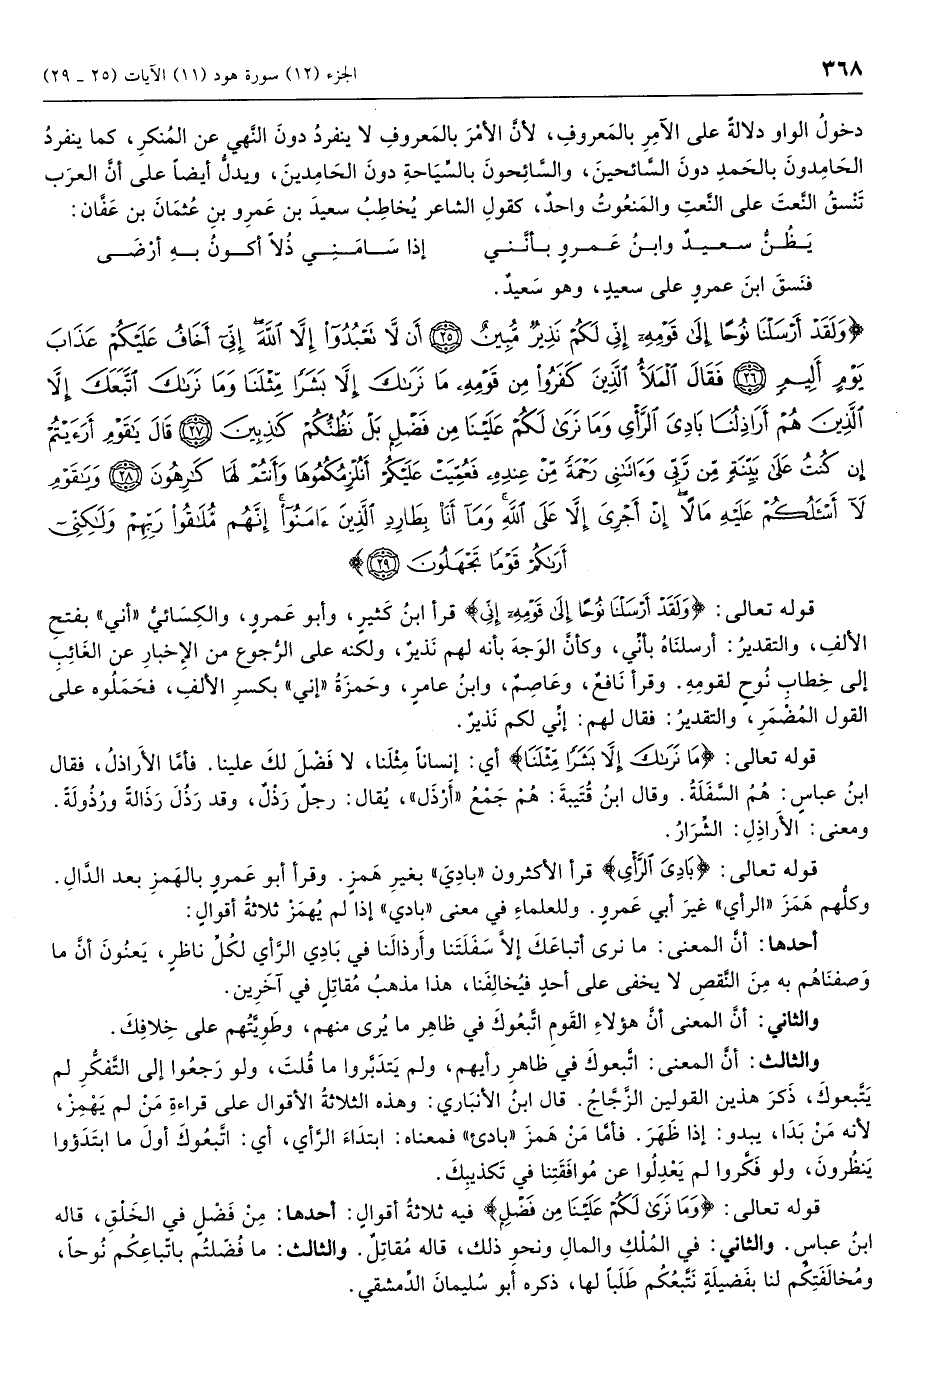 ٣٦٨
الجزء (١٢) سورة هود (١١) الآيات (٢٥ ـ ٢٩)
دخولُ الواو دلالةً على الآمِرِ بالمَعروفِ، لأنَّ الأمْرَ بالمَعروفِ لا ينفردُ دونَ النَّهي عن المُنكرِ، كما ينفردُ
الحَامِدونَ بالحَمدِ دونَ السَّائحينَ، والسَّائِحونَ بالسِّيَاحةِ دونَ الحَامِدينَ، ويدلُّ أيضاً على أنَّ العرَب
تَنْسقُ النَّعتَ على النَّعتِ والمَنعُوتُ واحدٌ، كقولِ الشاعر يُخاطِبُ سعيدَ بن عَمرِو بنِ عُثمَانَ بن عَفَّان:
يَظُنُّ سعيدٌ وابنُ عَمرو بأنَّني إذا سَامَنِي ذُلاً أكونُ بهِ أرْضَى
فنَسقَ ابنَ عمرو على سعيدٍ، وهو سَعيدٌ.
﴿وَلَقَدْ أَرْسَلْنَا نُوحًا إِلَىٰ قَوْمِهِۦٓ إِنِّي لَكُمْ نَذِيرٌ مُّبِينٌ ٢٥ أَن لَّا تَعْبُدُوٓا۟ إِلَّا ٱللَّهَ ۖ إِنِّىٓ أَخَافُ عَلَيْكُمْ عَذَابَ
يَوْمٍ أَلِيمٍ ٢٦ فَقَالَ ٱلْمَلَأُ ٱلَّذِينَ كَفَرُوا۟ مِن قَوْمِهِۦ مَا نَرَىٰكَ إِلَّا بَشَرًا مِّثْلَنَا وَمَا نَرَىٰكَ ٱتَّبَعَكَ إِلَّا
ٱلَّذِينَ هُمْ أَرَاذِلُنَا بَادِىَ ٱلرَّأْىِ وَمَا نَرَىٰ لَكُمْ عَلَيْنَا مِن فَضْلٍۭ بَلْ نَظُنُّكُمْ كَٰذِبِينَ ٢٧ قَالَ يَٰقَوْمِ أَرَءَيْتُمْ
إِن كُنتُ عَلَىٰ بَيِّنَةٍ مِّن رَّبِّى وَءَاتَىٰنِى رَحْمَةً مِّنْ عِندِهِۦ فَعُمِّيَتْ عَلَيْكُمْ أَنُلْزِمُكُمُوهَا وَأَنتُمْ لَهَا كَٰرِهُونَ ٢٨ وَيَٰقَوْمِ
لَآ أَسْـَٔلُكُمْ عَلَيْهِ مَالًا ۖ إِنْ أَجْرِىَ إِلَّا عَلَى ٱللَّهِ ۚ وَمَآ أَنَا۠ بِطَارِدِ ٱلَّذِينَ ءَامَنُوٓا۟ ۚ إِنَّهُم مُّلَٰقُوا۟ رَبِّهِمْ وَلَٰكِنِّىٓ
أَرَىٰكُمْ قَوْمًا تَجْهَلُونَ ٢٩﴾
قوله تعالى: ﴿وَلَقَدْ أَرْسَلْنَا نُوحًا إِلَىٰ قَوْمِهِۦٓ إِنِّي﴾ قرأ ابنُ كَثيرٍ، وأبو عَمرو، والكِسَائيُّ «أني» بفتحِ
الألفِ، والتقديرُ: أرسلنَاهُ بأنِّي، وكأنَّ الوَجهَ بأنه لهم نَذيرٌ، ولكنه على الرُّجوع من الإخبارِ عن الغَائبِ
إلى خِطابِ نُوحٍ لقومِهِ. وقرأ نَافعٌ، وعَاصِمٌ، وابنُ عامرٍ، وحَمزَةُ «إني» بكسرِ الألفِ، فحَمَلُوه على
القول المُضْمَرِ، والتقديرُ: فقال لهم: إنِّي لكم نَذيرٌ.
قوله تعالى: ﴿مَا نَرَىٰكَ إِلَّا بَشَرًا مِّثْلَنَا﴾ أي: إنساناً مِثْلَنا، لا فَضْلَ لكَ علينا. فأمَّا الأراذلُ، فقال
ابنُ عباسٍ: هُمُ السَّفَلَةُ. وقال ابنُ قُتيبةَ: هُمْ جَمْعُ «أَرْذَل»، يُقال: رجلٌ رَذْلٌ، وقد رَذُلَ رَذَالةً ورُذُولَةً.
ومعنى: الأراذِلِ: الشِّرَارُ.
قوله تعالى: ﴿بَادِىَ ٱلرَّأْىِ﴾ قرأ الأكثرون «بادِيَ» بغيرِ هَمزٍ. وقرأ أبو عَمرو بالهَمزِ بعد الدَّالِ.
وكلُّهم هَمَزَ «الرأي» غيرَ أبي عَمرو. وللعلماءِ في معنى «بادي» إذا لم يُهمَزْ ثلاثةُ أقوالٍ:
أحدها: أنَّ المعنى: ما نرى أتباعَكَ إلاَّ سَفَلَتَنا وأَرذالَنا في بَادِي الرَّأي لكُلِّ ناظرٍ، يَعنُون أنَّ ما
وَصفنَاهُم به مِنَ النَّقصِ لا يخفى على أحدٍ فيُخالِفَنا، هذا مذهبُ مُقاتِلٍ في آخَرِين.
والثاني: أنَّ المعنى أنَّ هؤلاءِ القَومِ اتَّبعُوكَ في ظاهِرِ ما يُرى منهم، وطَوِيَّتُهم على خِلافِكَ.
والثالث: أنَّ المعنى: اتَّبعوكَ في ظاهرِ رأيهم، ولم يَتدَبَّروا ما قُلتَ، ولو رَجعُوا إلى التَّفكُّرِ لم
يَتَّبعوكَ، ذَكرَ هذين القولين الزَّجَّاجُ. قال ابنُ الأنبَاري: وهذه الثلاثةُ الأقوال على قراءةِ مَنْ لم يَهْمِزْ،
لأنه مَنْ بَدَا، يبدو: إذا ظَهَرَ. فأمَّا مَنْ همزَ «بادئ» فمعناه: ابتدَاءَ الرَّأي، أي: اتَّبعُوكَ أولَ ما ابتَدَؤوا
يَنظُرونَ، ولو فكَّروا لم يَعْدِلُوا عن مُوافَقَتِنا في تَكذيبِكَ.
قوله تعالى: ﴿وَمَا نَرَىٰ لَكُمْ عَلَيْنَا مِن فَضْلٍ﴾ فيه ثلاثةُ أقوالٍ: أحدها: مِنْ فَضْلٍ في الخَلْقِ، قاله
ابنُ عباسٍ. والثاني: في المُلْكِ والمالِ ونحوِ ذلك، قاله مُقاتلٌ. والثالث: ما فُضّلتُم باتباعِكُم نُوحاً،
ومُخالَفَتِكُم لنا بفَضيلَةٍ نَتَّبعُكُم طَلَباً لها، ذكره أبو سُليمانَ الدِّمشقي.